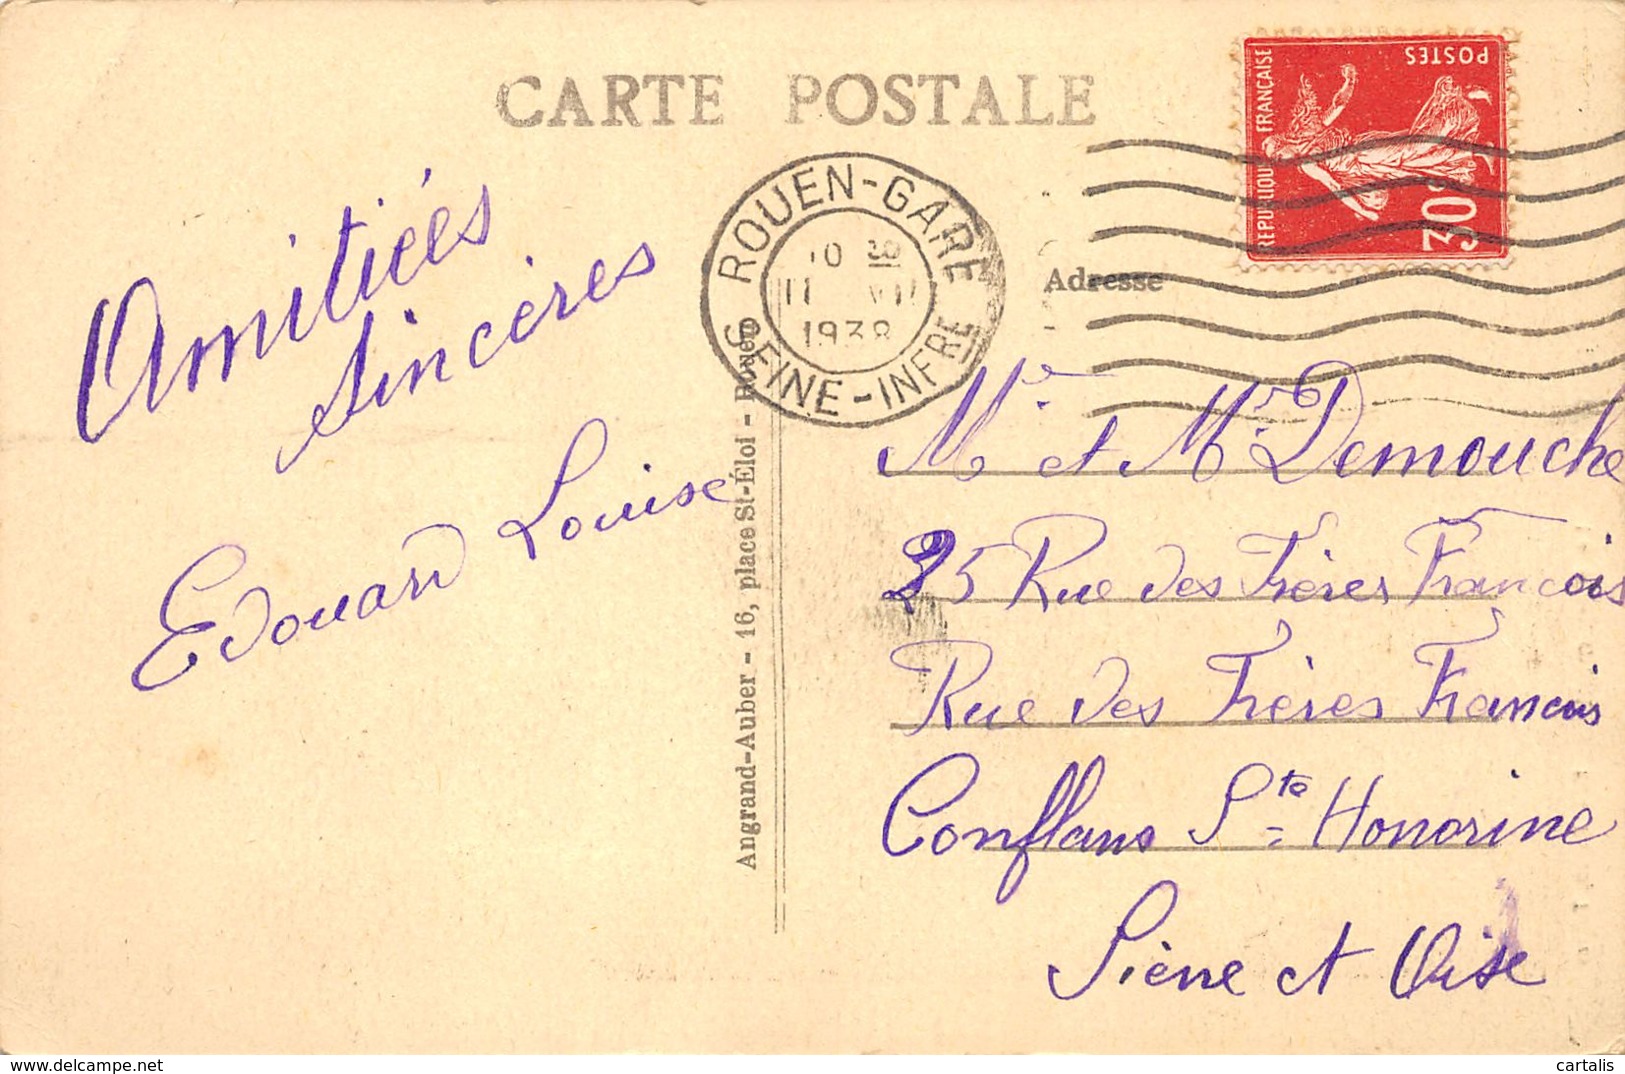 CARTE POSTALE
RÉPUBLIQUE FRANÇAISE
POSTES
30c
ROUEN-GARE
10 30
11 VII
1938
SEINE-INFRE
Adresse
Amitiées
Sincères
Edouard Louise
Angrand-Auber - 16, place St-Éloi - Rouen
Me et Mr Demouche
25 Rue des Frères Francois
Rue des Frères Francois
Conflans Ste Honorine
Siène et Oise
© cartalis